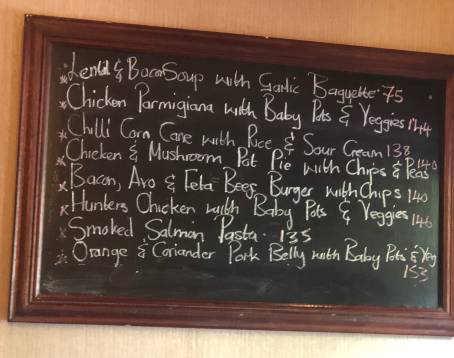 * Lentil & Bacon Soup with Garlic Baguette · 75
* Chicken Parmigiana with Baby Pots & Veggies 144
* Chilli Corn Cane with Rice & Sour Cream 138
* Chicken & Mushroom Pot Pie with Chips & Peas 140
* Bacon, Avo & Feta Beef Burger with Chips 140
* Hunters Chicken with Baby Pots & Veggies 146
* Smoked Salmon Pasta · 135
* Orange & Coriander Pork Belly with Baby Pots & Veg
153